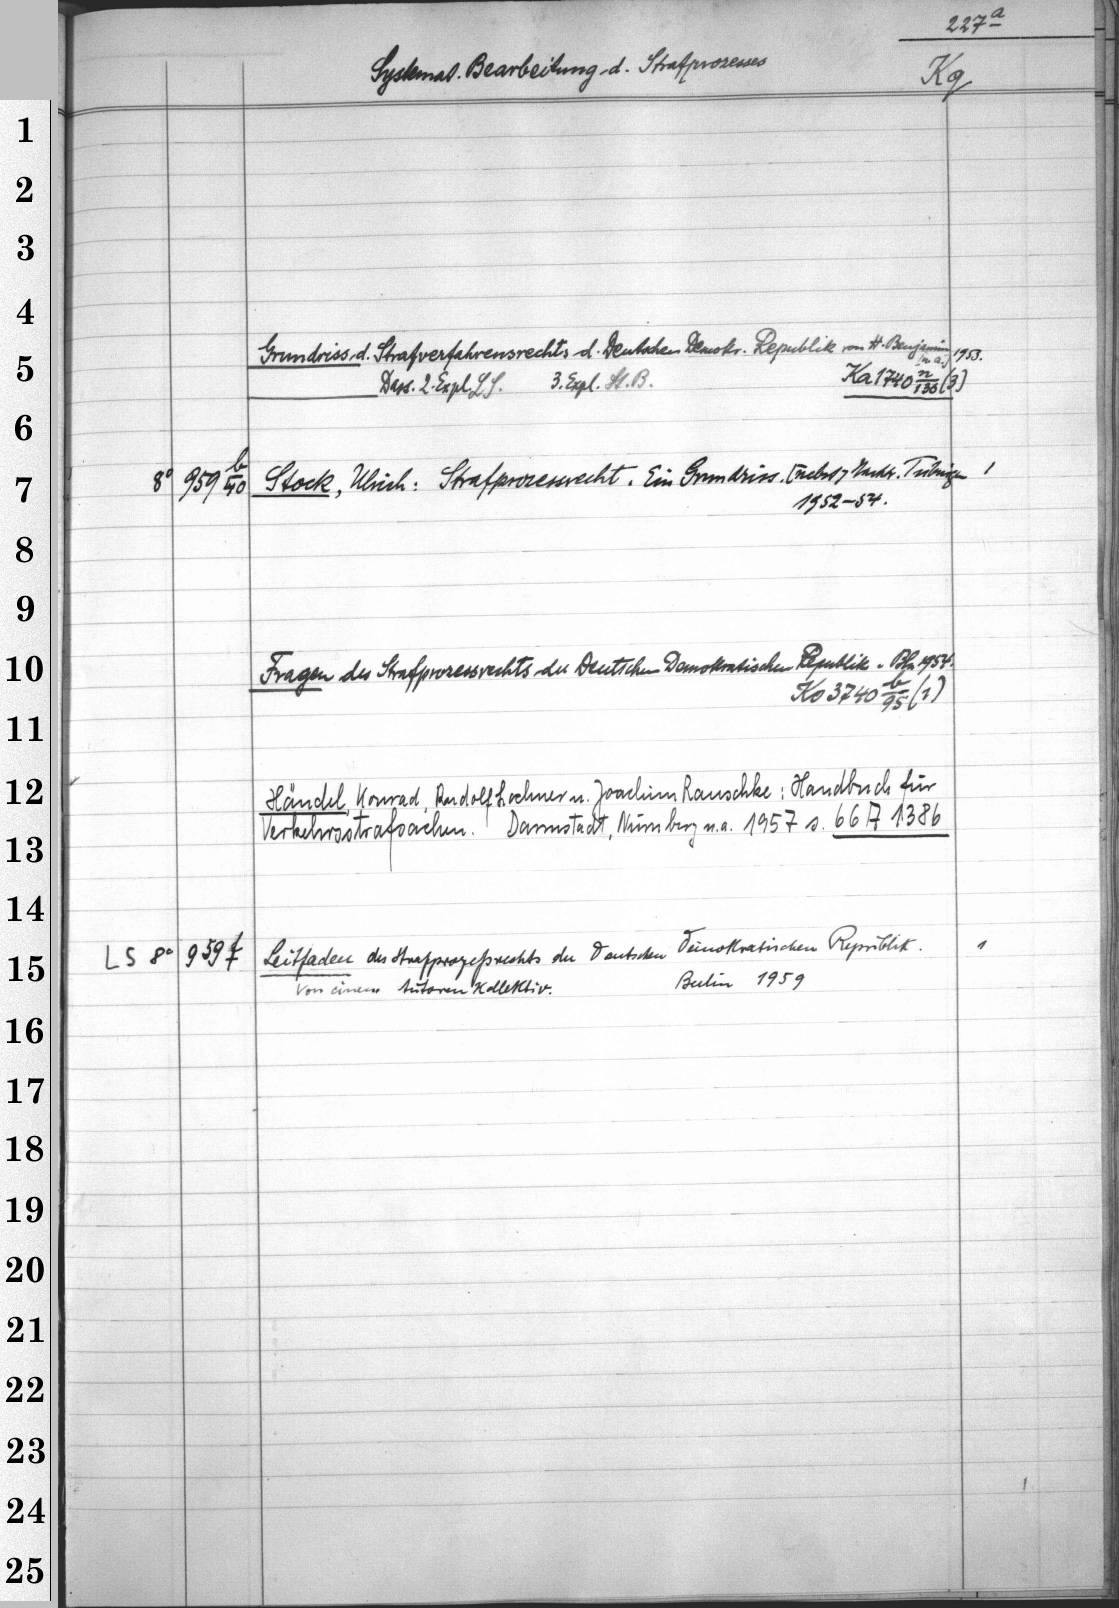 227a
Systemat. Bearbeitung d. Strafprozesses
Kq
1
2
3
4
Grundriss d. Strafverfahrensrechts d. Deutschen Demokr. Republik von H. Benjamin [u. a.] 1953.
5
Dass. 2. Expl. LS. 3. Expl. St. B. Ka 1740 n/135 (3)
6
7
8° 959 b/40 Stock, Ulrich: Strafprozessrecht. Ein Grundriss. [nebst] Nachtr. Tübingen 1
1952-54.
8
9
10
Fragen des Strafprozessrechts der Deutschen Demokratischen Republik. Bln 1954.
Ko 3740 b/95 (1)
11
12
Händel, Konrad, Rudolf Lochner u. Joachim Rauschke: Handbuch für
Verkehrsstrafsachen. Darmstadt, Nürnberg u.a. 1957 s. 66 A 1386
13
14
LS 8° 959 f Leitfaden des Strafprozeßrechts der Deutschen Demokratischen Republik. 1
15
Von einem Autoren Kollektiv. Berlin 1959
16
17
18
19
20
21
22
23
24
25